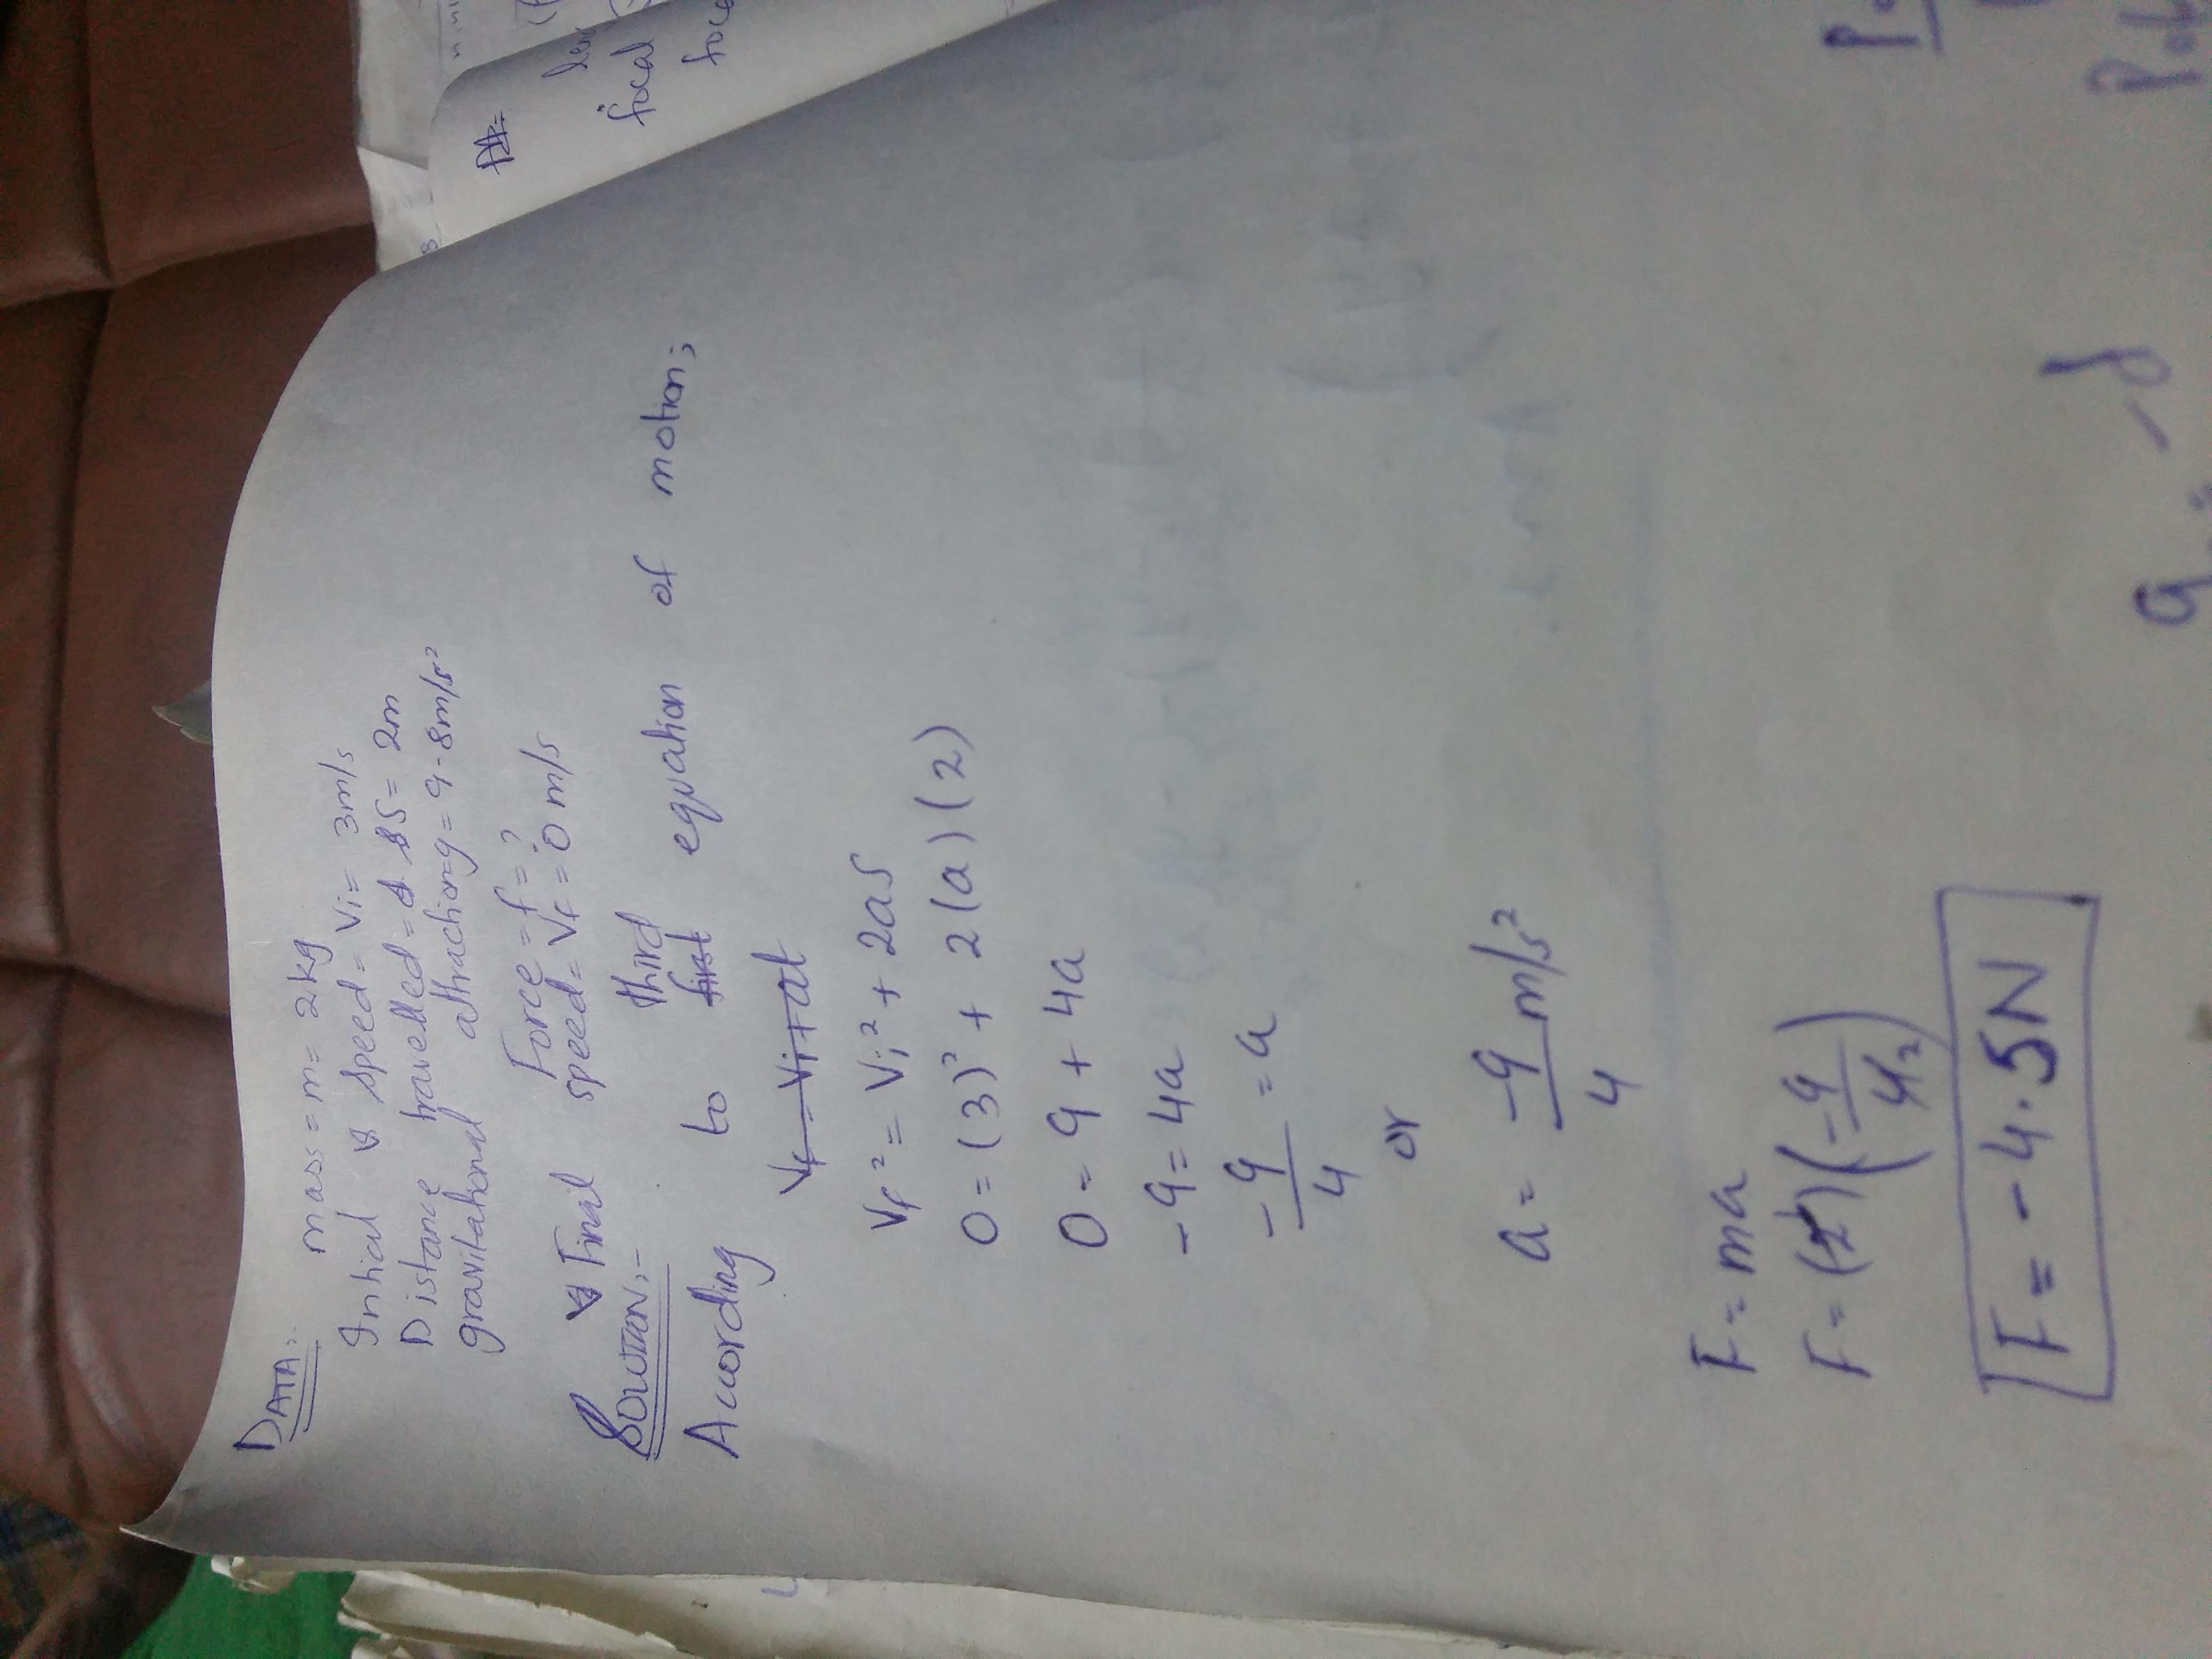 DATA:-
mass = m = 2kg
Initial speed = Vi = 3m/s
Distance travelled = S = 2m
gravitational attraction = g = 9.8m/s²
Force = f = ?
Final speed = Vf = 0 m/s
SOLUTION:-
According to first third equation of motion;
Vf = Vi + at
Vf² = Vi² + 2aS
0 = (3)² + 2(a)(2)
0 = 9 + 4a
-9 = 4a
-9/4 = a
or
a = -9/4 m/s²
F = ma
F = (2)(-9/4 2)
F = -4.5N
focal